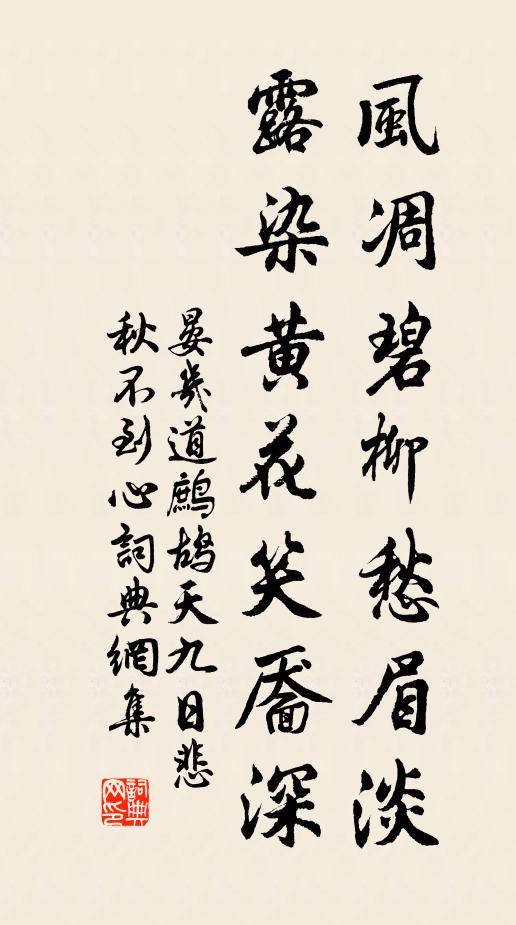 風凋碧柳愁眉淡
露染黄花笑靨深
晏幾道鷓鴣天九日悲
秋不到心詞典網集
詞典
网印